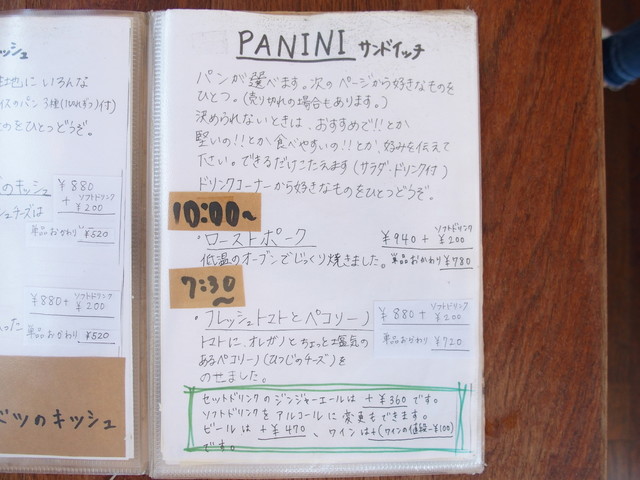 キッシュ
生地にいろんな
イスのパン3種(1個ずつ付)
ものをひとつどうぞ。
のキッシュ
¥880
+ソフトドリンク ¥200
シュチーズは
単品おかわり ¥520
¥880+ソフトドリンク ¥200
った 単品おかわり ¥520
ベツのキッシュ
PANINI サンドイッチ
パンが選べます。次のページから好きなものを
ひとつ。(売り切れの場合もあります。)
決められないときは、おすすめで!!とか
堅いの!!とか食べやすいの!!とか、好みを伝えて
下さい。できるだけこたえます(サラダ・ドリンク付)
ドリンクコーナーから好きなものをひとつどうぞ。
10:00~
・ローストポーク ¥940+ソフトドリンク ¥200
低温のオーブンでじっくり焼きました。単品おかわり ¥780
7:30~
・フレッシュトマトとペコリーノ ¥880+ソフトドリンク ¥200
トマトに、オレガノとちょっと塩気の 単品おかわり ¥720
あるペコリーノ(ひつじのチーズ)を
のせました。
セットドリンクのジンジャーエールは +¥360です。
ソフトドリンクをアルコールに変更もできます。
ビールは+¥470、ワインは+(ワインの値段-¥100)
です。